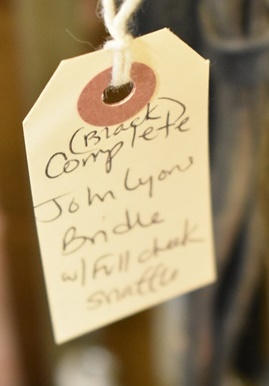 (Black)
Complete
John Lyons
Bridle
w/ Full cheek
snaffle